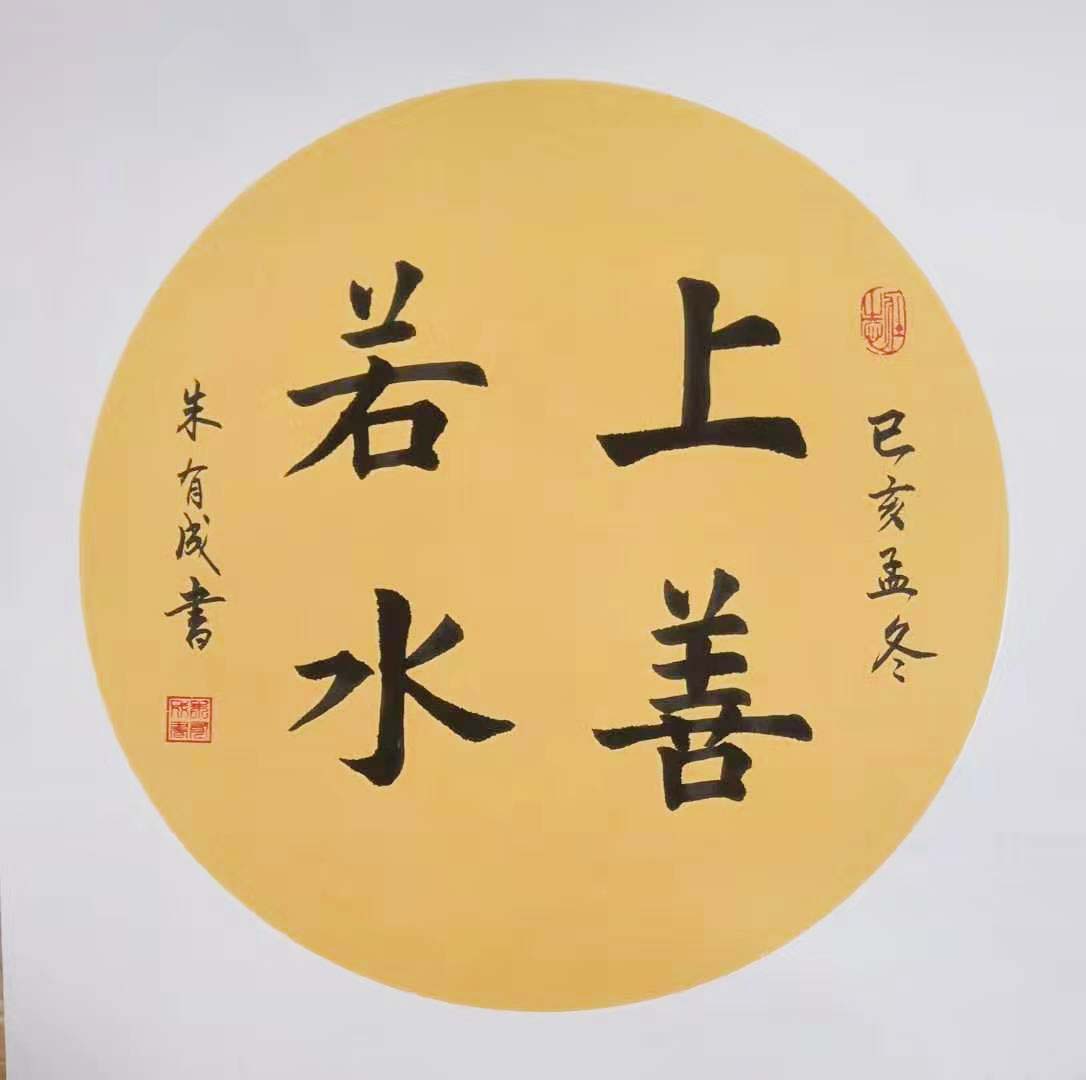 己亥孟冬
上善
若水
朱有成书